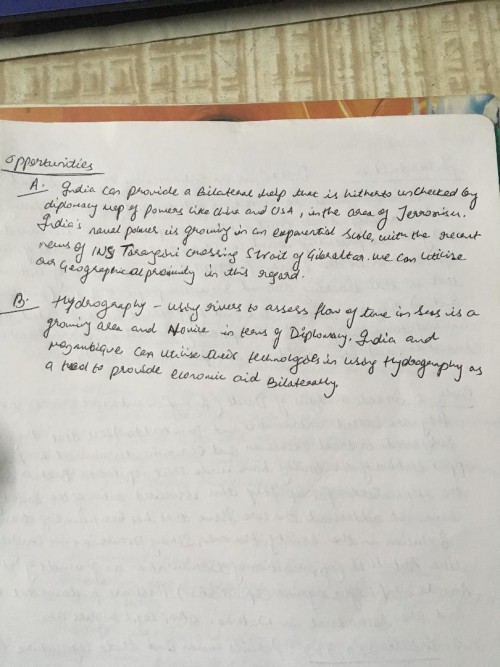 Opportunities
A. India can provide a Bilateral help that is hitherto unchecked by
diplomacy map of powers like China and USA, in the area of Terrorism.
India's naval power is growing in an exponential scale, with the recent
news of INS Tarangini crossing Strait of Gibraltar. We can Utilise
our Geographical proximity in this regard.
B. Hydrography - using rivers to assess flow of time in seas is a
growing area and Novice in terms of Diplomacy. India and
Mozambique can utilise their technologies in using Hydrography as
a tool to provide economic aid Bilaterally.